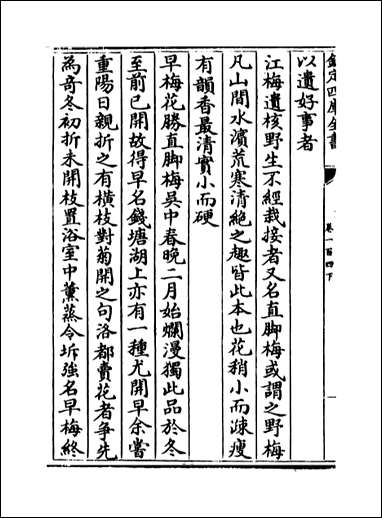 欽定四庫全書
卷一百四下
以遺好事者
江梅遺核野生不經栽接者又名直脚梅或謂之野梅
凡山間水濱荒寒清絶之趣皆此本也花稍小而疎瘦
有韻香最清實小而硬
早梅花勝直脚梅吳中春晚二月始爛漫獨此品於冬
至前已開故得早名錢塘湖上亦有一種尤開早余嘗
重陽日親折之有横枝對菊開之句洛都賣花者争先
為奇冬初折未開枝置浴室中薰蒸令坼強名早梅終